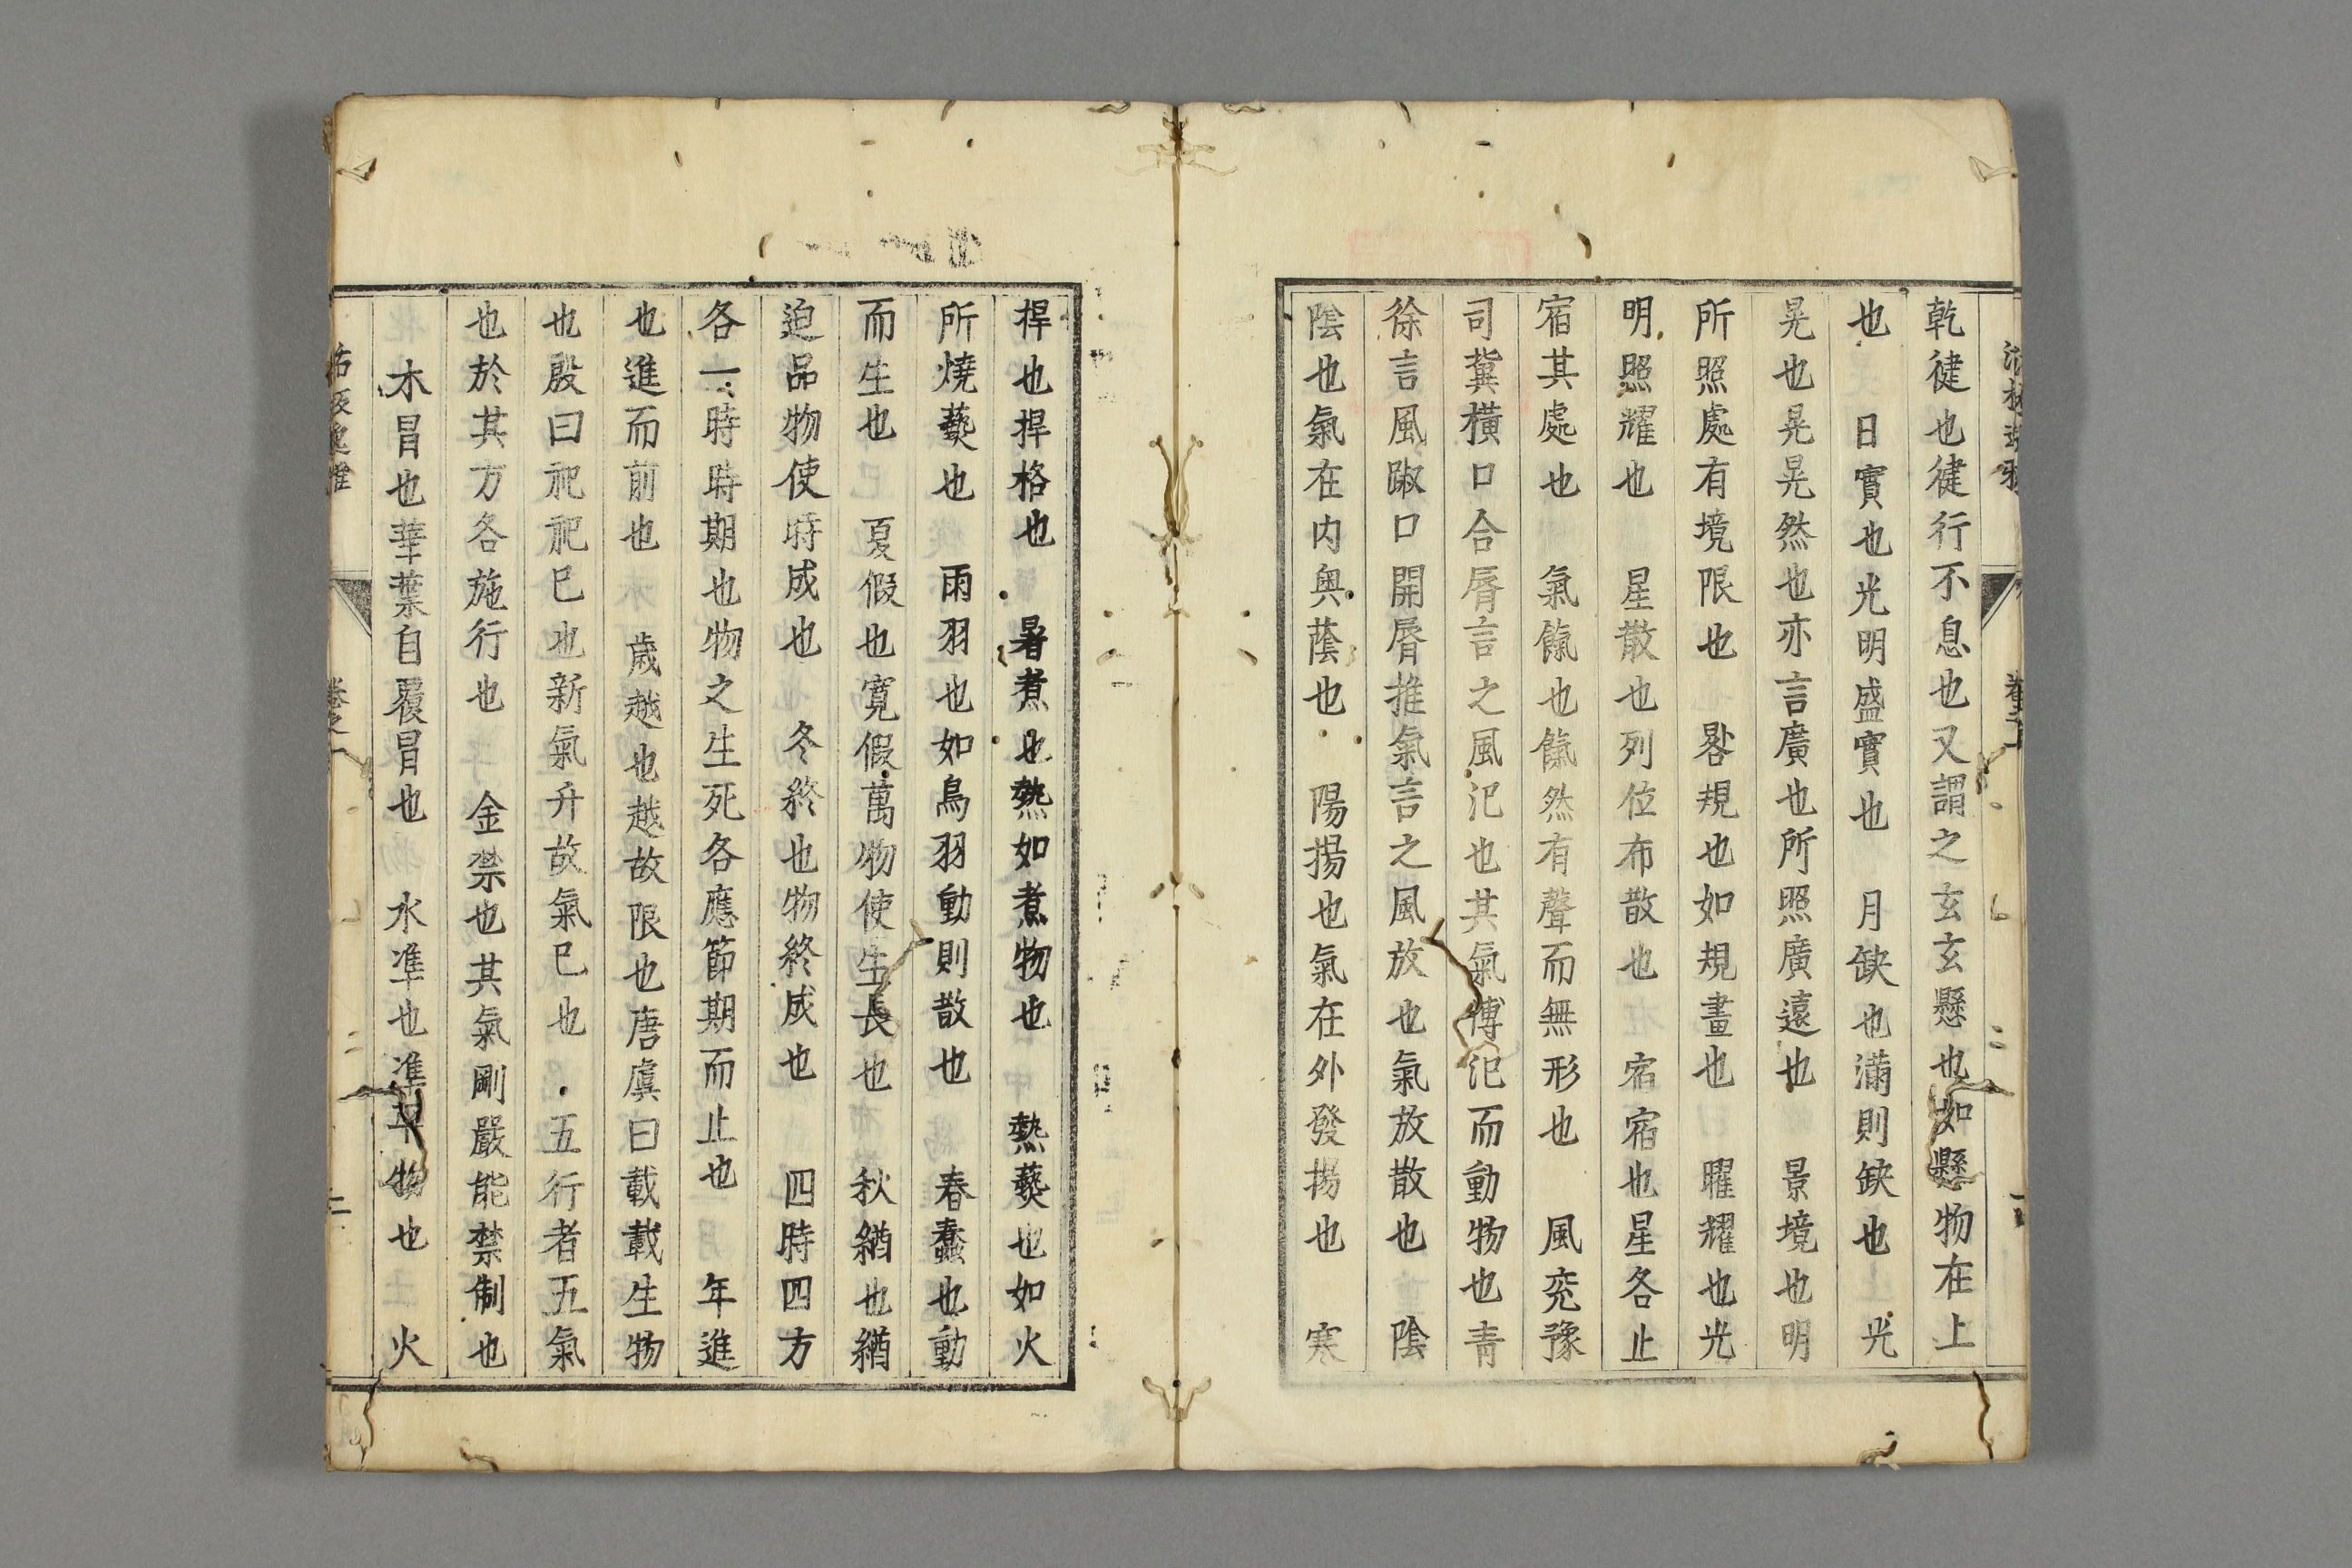 乾徤也徤行不息也又謂之玄玄懸也如懸物在上
也　日實也光明盛實也　月缺也滿則缺也　光
晃也晃晃然也亦言廣也所照廣遠也　景境也明
所照處有境限也　晷規也如規畫也　曜耀也光
明照耀也　星散也列位布散也　宿宿也星各止
宿其處也　氣餼也餼然有聲而無形也　風兖豫
司冀橫口合脣言之風氾也其氣博氾而動物也青
徐言風踧口開脣推氣言之風放也氣放散也　陰
陰也氣在内奥蔭也　陽揚也氣在外發揚也　寒
捍也捍格也　暑煮也熱如煮物也　熱爇也如火
所燒爇也　雨羽也如鳥羽動則散也　春蠢也動
而生也　夏假也寛假萬物使生長也　秋緧也緧
迫品物使時成也　冬終也物終成也　四時四方
各一時時期也物之生死各應節期而止也　年進
也進而前也　歲越也越故限也唐虞曰載載生物
也殷曰祀祀巳也新氣升故氣巳也　五行者五氣
也於其方各施行也　金禁也其氣剛嚴能禁制也
木冒也華葉自覆冒也　水準也準平物也　火